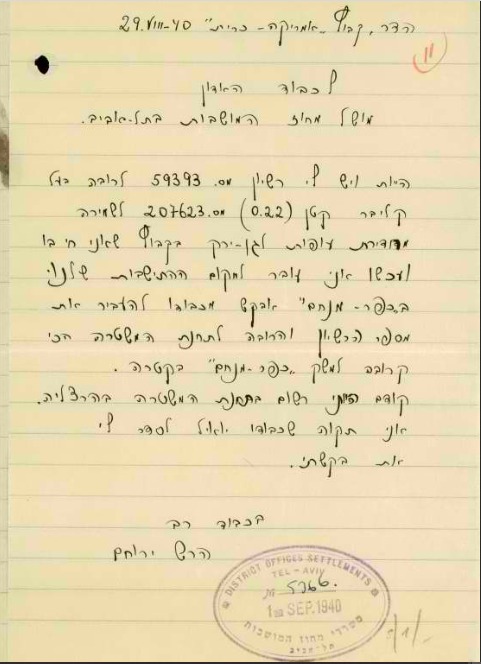 הדר, קבוץ "אמריקה-כרית" 29.VIII-40
11
לכבוד האדון
מושל מחוז המושבות בתל-אביב.
היות ויש לי רשיון מס. 59393 לרובה בעל
קליבר קטן (0.22) מס. 207623 לשמירה
עופות לגן-ירק בקבוץ שאני חי בו
ועכשו אני עובר למקום ההתישבות שלנו
בכפר-מנחם" אבקש מכבודו להעביר את
מספר הרשיון והרובה לתחנת המשטרה הכי
קרובה למשק "כפר-מנחם" בקטרה.
קודם הייתי רשום בתחנת המשטרה בהרצליה.
אני תקוה שכבודו יואיל לסדר לי
את בקשתי.
בכבוד רב
הרש ירוחם
DISTRICT OFFICES SETTLEMENTS
TEL-AVIV
№ 5266.
1 SEP. 1940
משרדי מחוז המושבות
תל-אביב